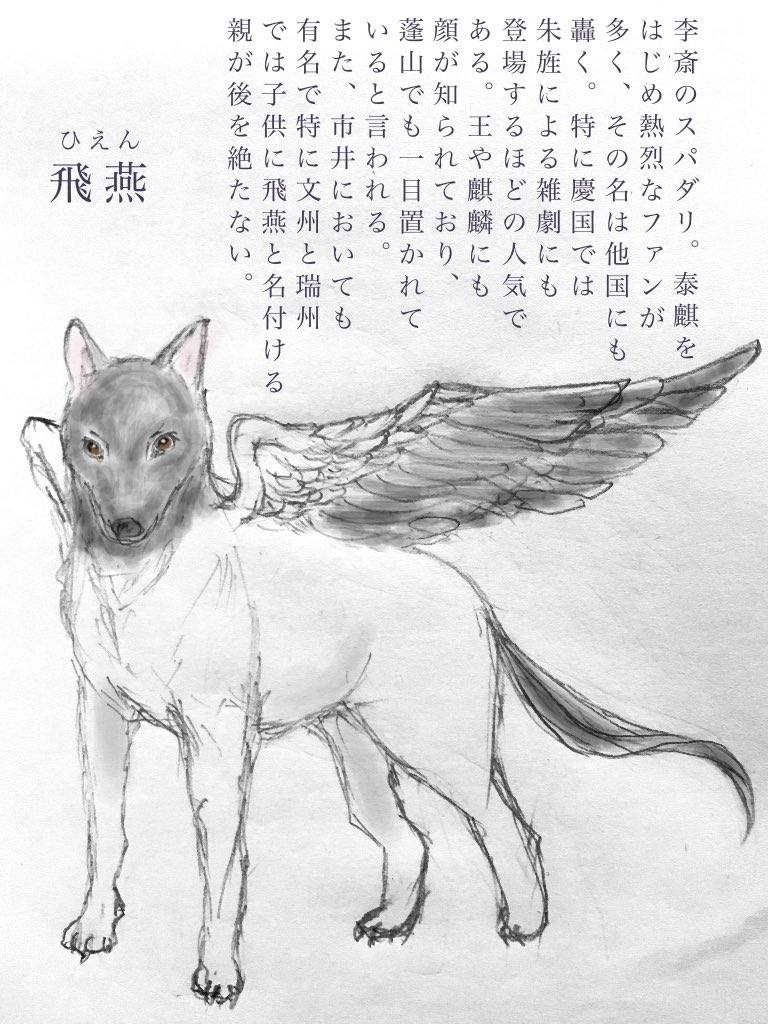 李斎のスパダリ。泰麒を
はじめ熱烈なファンが
多く、その名は他国にも
轟く。特に慶国では
朱旌による雑劇にも
登場するほどの人気で
ある。王や麒麟にも
顔が知られており、
蓬山でも一目置かれて
いると言われる。
また、市井においても
有名で特に文州と瑞州
では子供に飛燕と名付ける
親が後を絶たない。
ひえん
飛燕